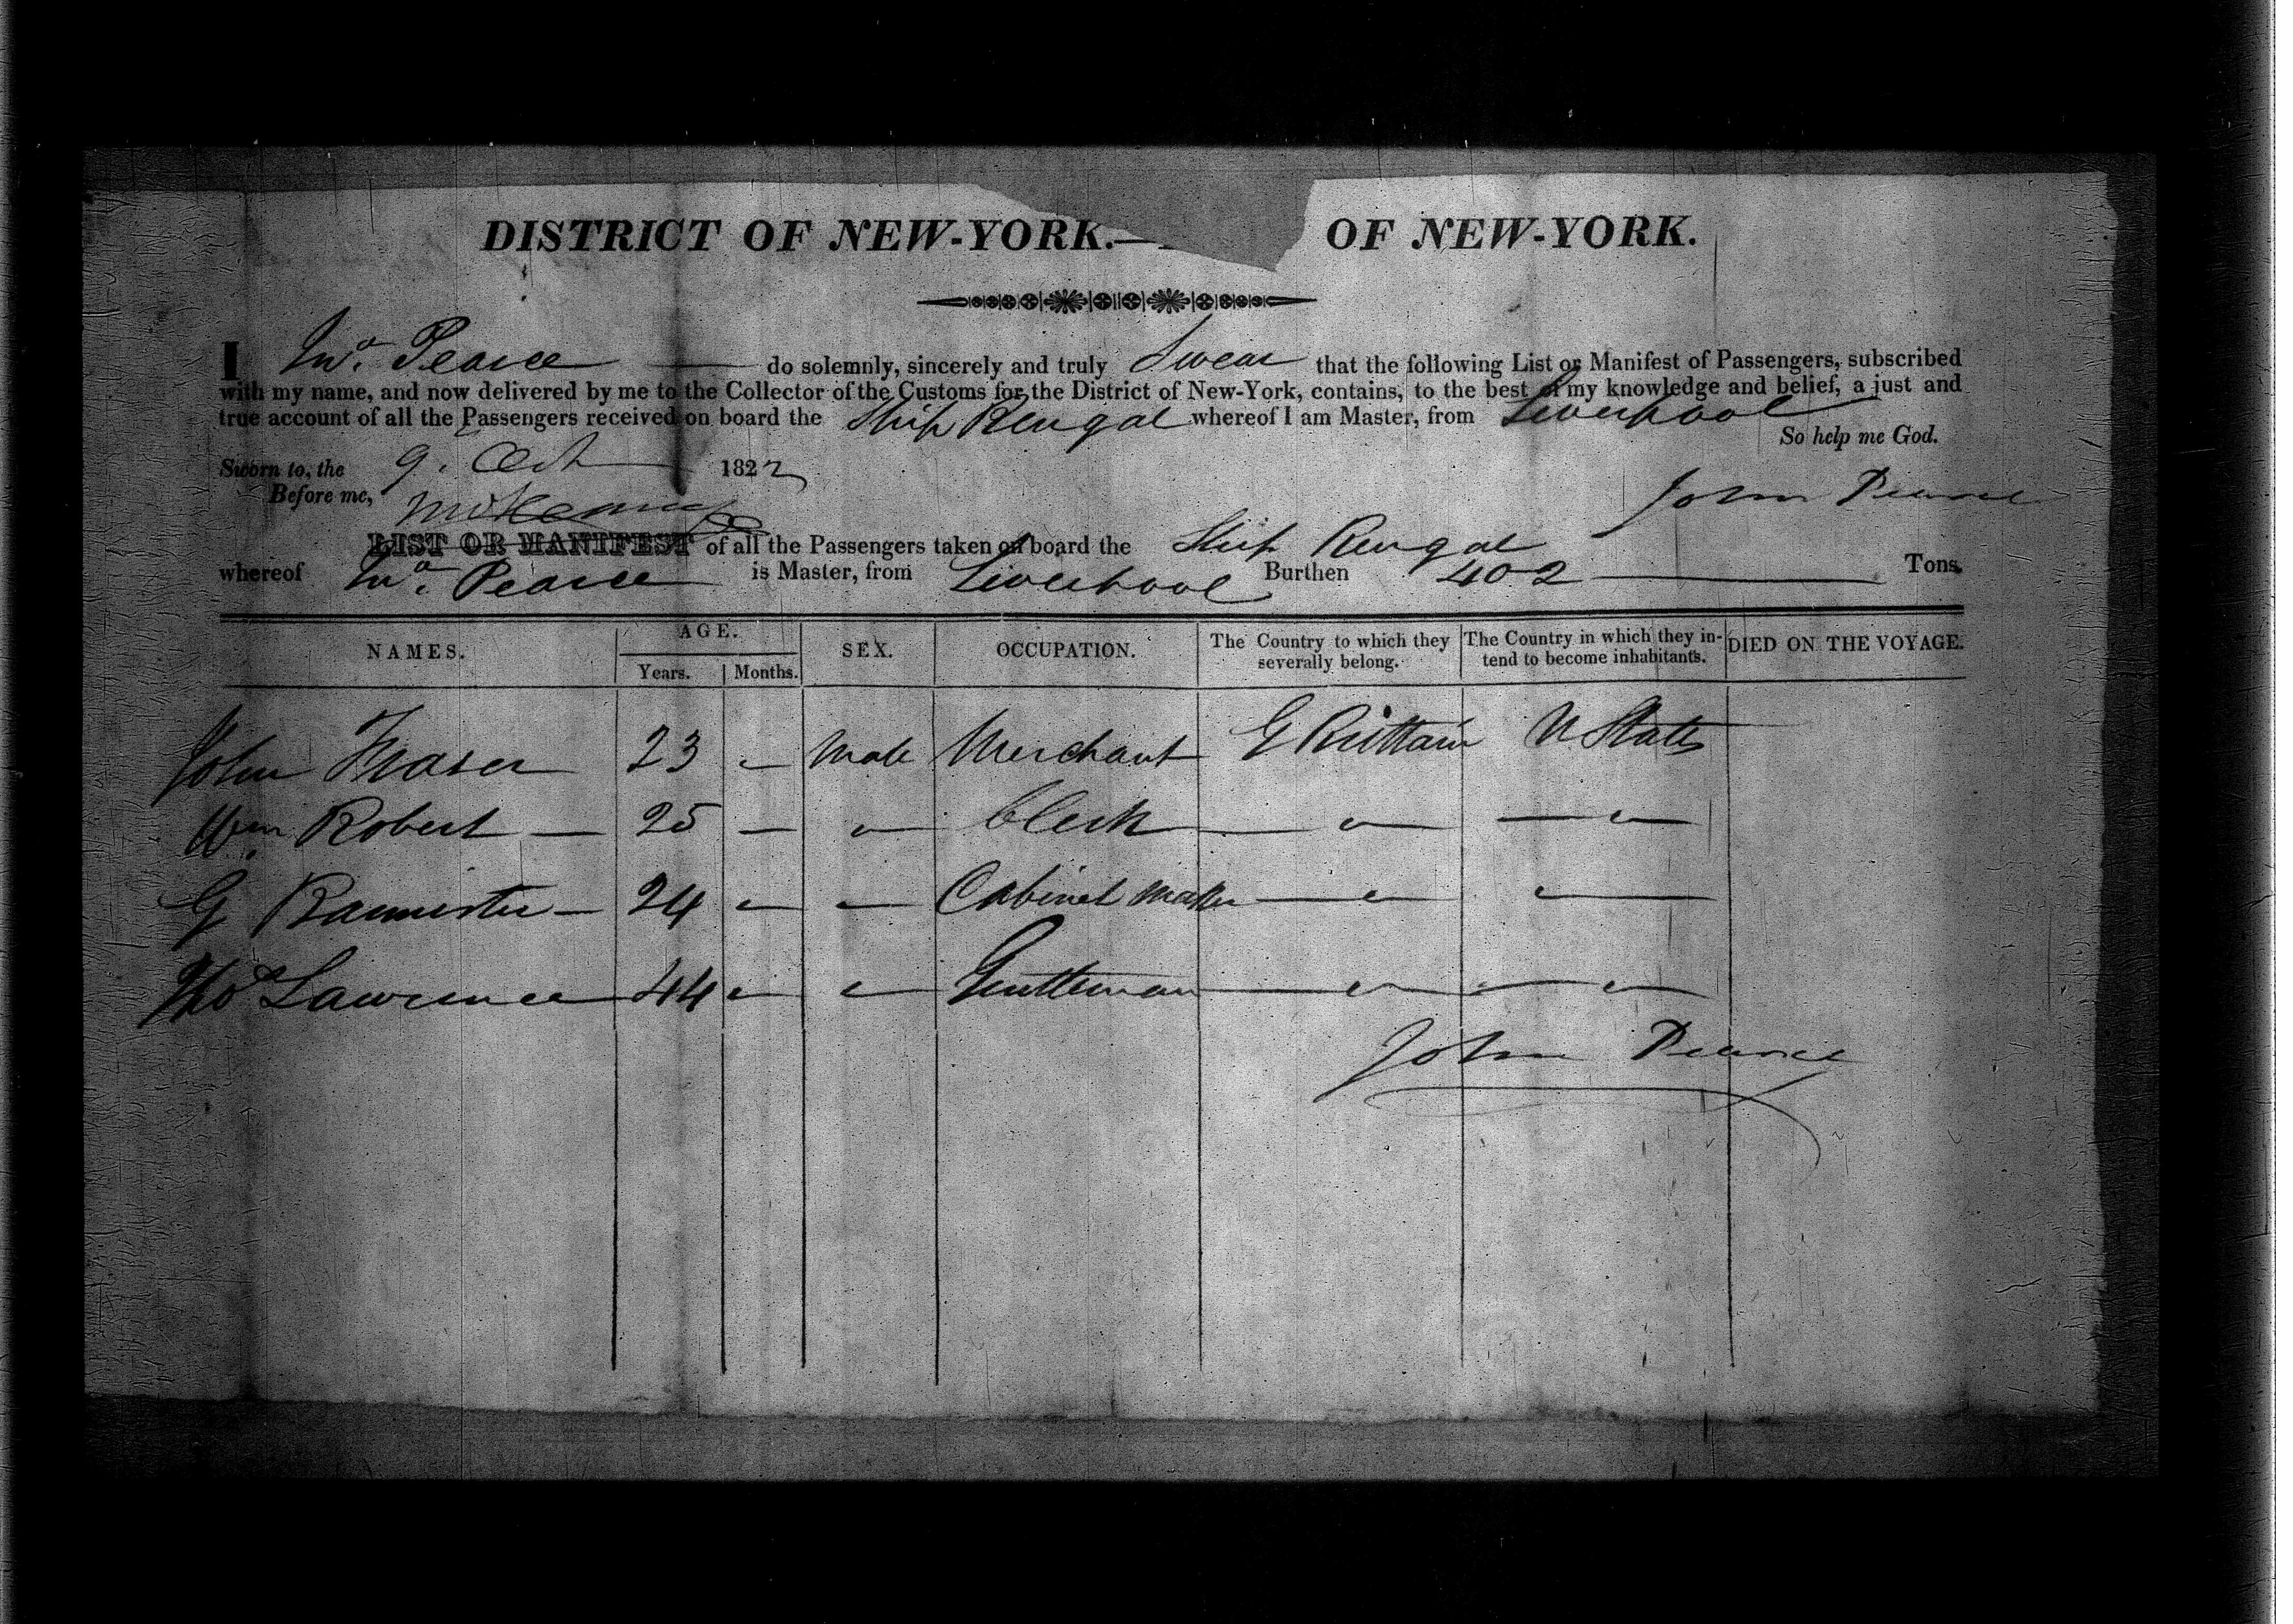 DISTRICT OF NEW-YORK.— OF NEW-YORK.
I Jno. Pearce do solemnly, sincerely and truly Swear that the following List or Manifest of Passengers, subscribed
with my name, and now delivered by me to the Collector of the Customs for the District of New-York, contains, to the best of my knowledge and belief, a just and
true account of all the Passengers received on board the Ship Bengal whereof I am Master, from Liverpool
So help me God.
Sworn to, the 9. Oct 1822
Before me,
John Pearce
LIST OR MANIFEST of all the Passengers taken on board the Ship Bengal
whereof Jno. Pearce is Master, from Liverpool Burthen 402 Tons.
NAMES. AGE. Years. Months. SEX. OCCUPATION. The Country to which they severally belong. The Country in which they intend to become inhabitants. DIED ON THE VOYAGE.
John Fraser 23 - Male Merchant G Brittain U States
Wm. Robert — 25 — " Clerk — " — — " —
G Bannister — 24 " — " — Cabinet maker — " — " —
Tho Lawrence — 44 " - " — Gentleman — " — — " —
John Pearce